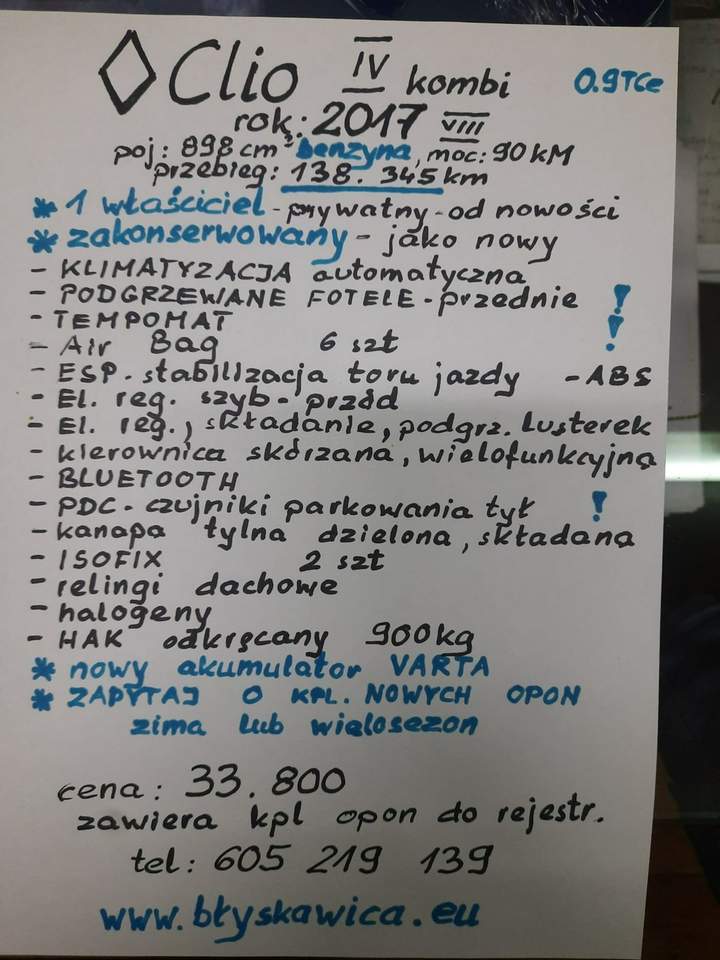 Clio IV kombi 0.9TCe
rok: 2017 VIII
poj: 898 cm³ benzyna, moc: 90 kM
przebieg: 138.345 km
* 1 właściciel - prywatny - od nowości
* zakonserwowany - jako nowy
- KLIMATYZACJA automatyczna
- PODGRZEWANE FOTELE - przednie !
- TEMPOMAT !
- Air Bag 6 szt
- ESP - stabilizacja toru jazdy - ABS
- El. reg. szyb - przód
- El. reg., składanie, podgrz. Lusterek
- kierownica skórzana, wielofunkcyjna
- BLUETOOTH
- PDC - czujniki parkowania tył !
- kanapa tylna dzielona, składana
- ISOFIX 2 szt
- relingi dachowe
- halogeny
- HAK odkręcany 900kg
* nowy akumulator VARTA
* ZAPYTAJ O KPL. NOWYCH OPON
zima lub wielosezon
cena: 33.800
zawiera kpl opon do rejestr.
tel: 605 219 139
www.błyskawica.eu